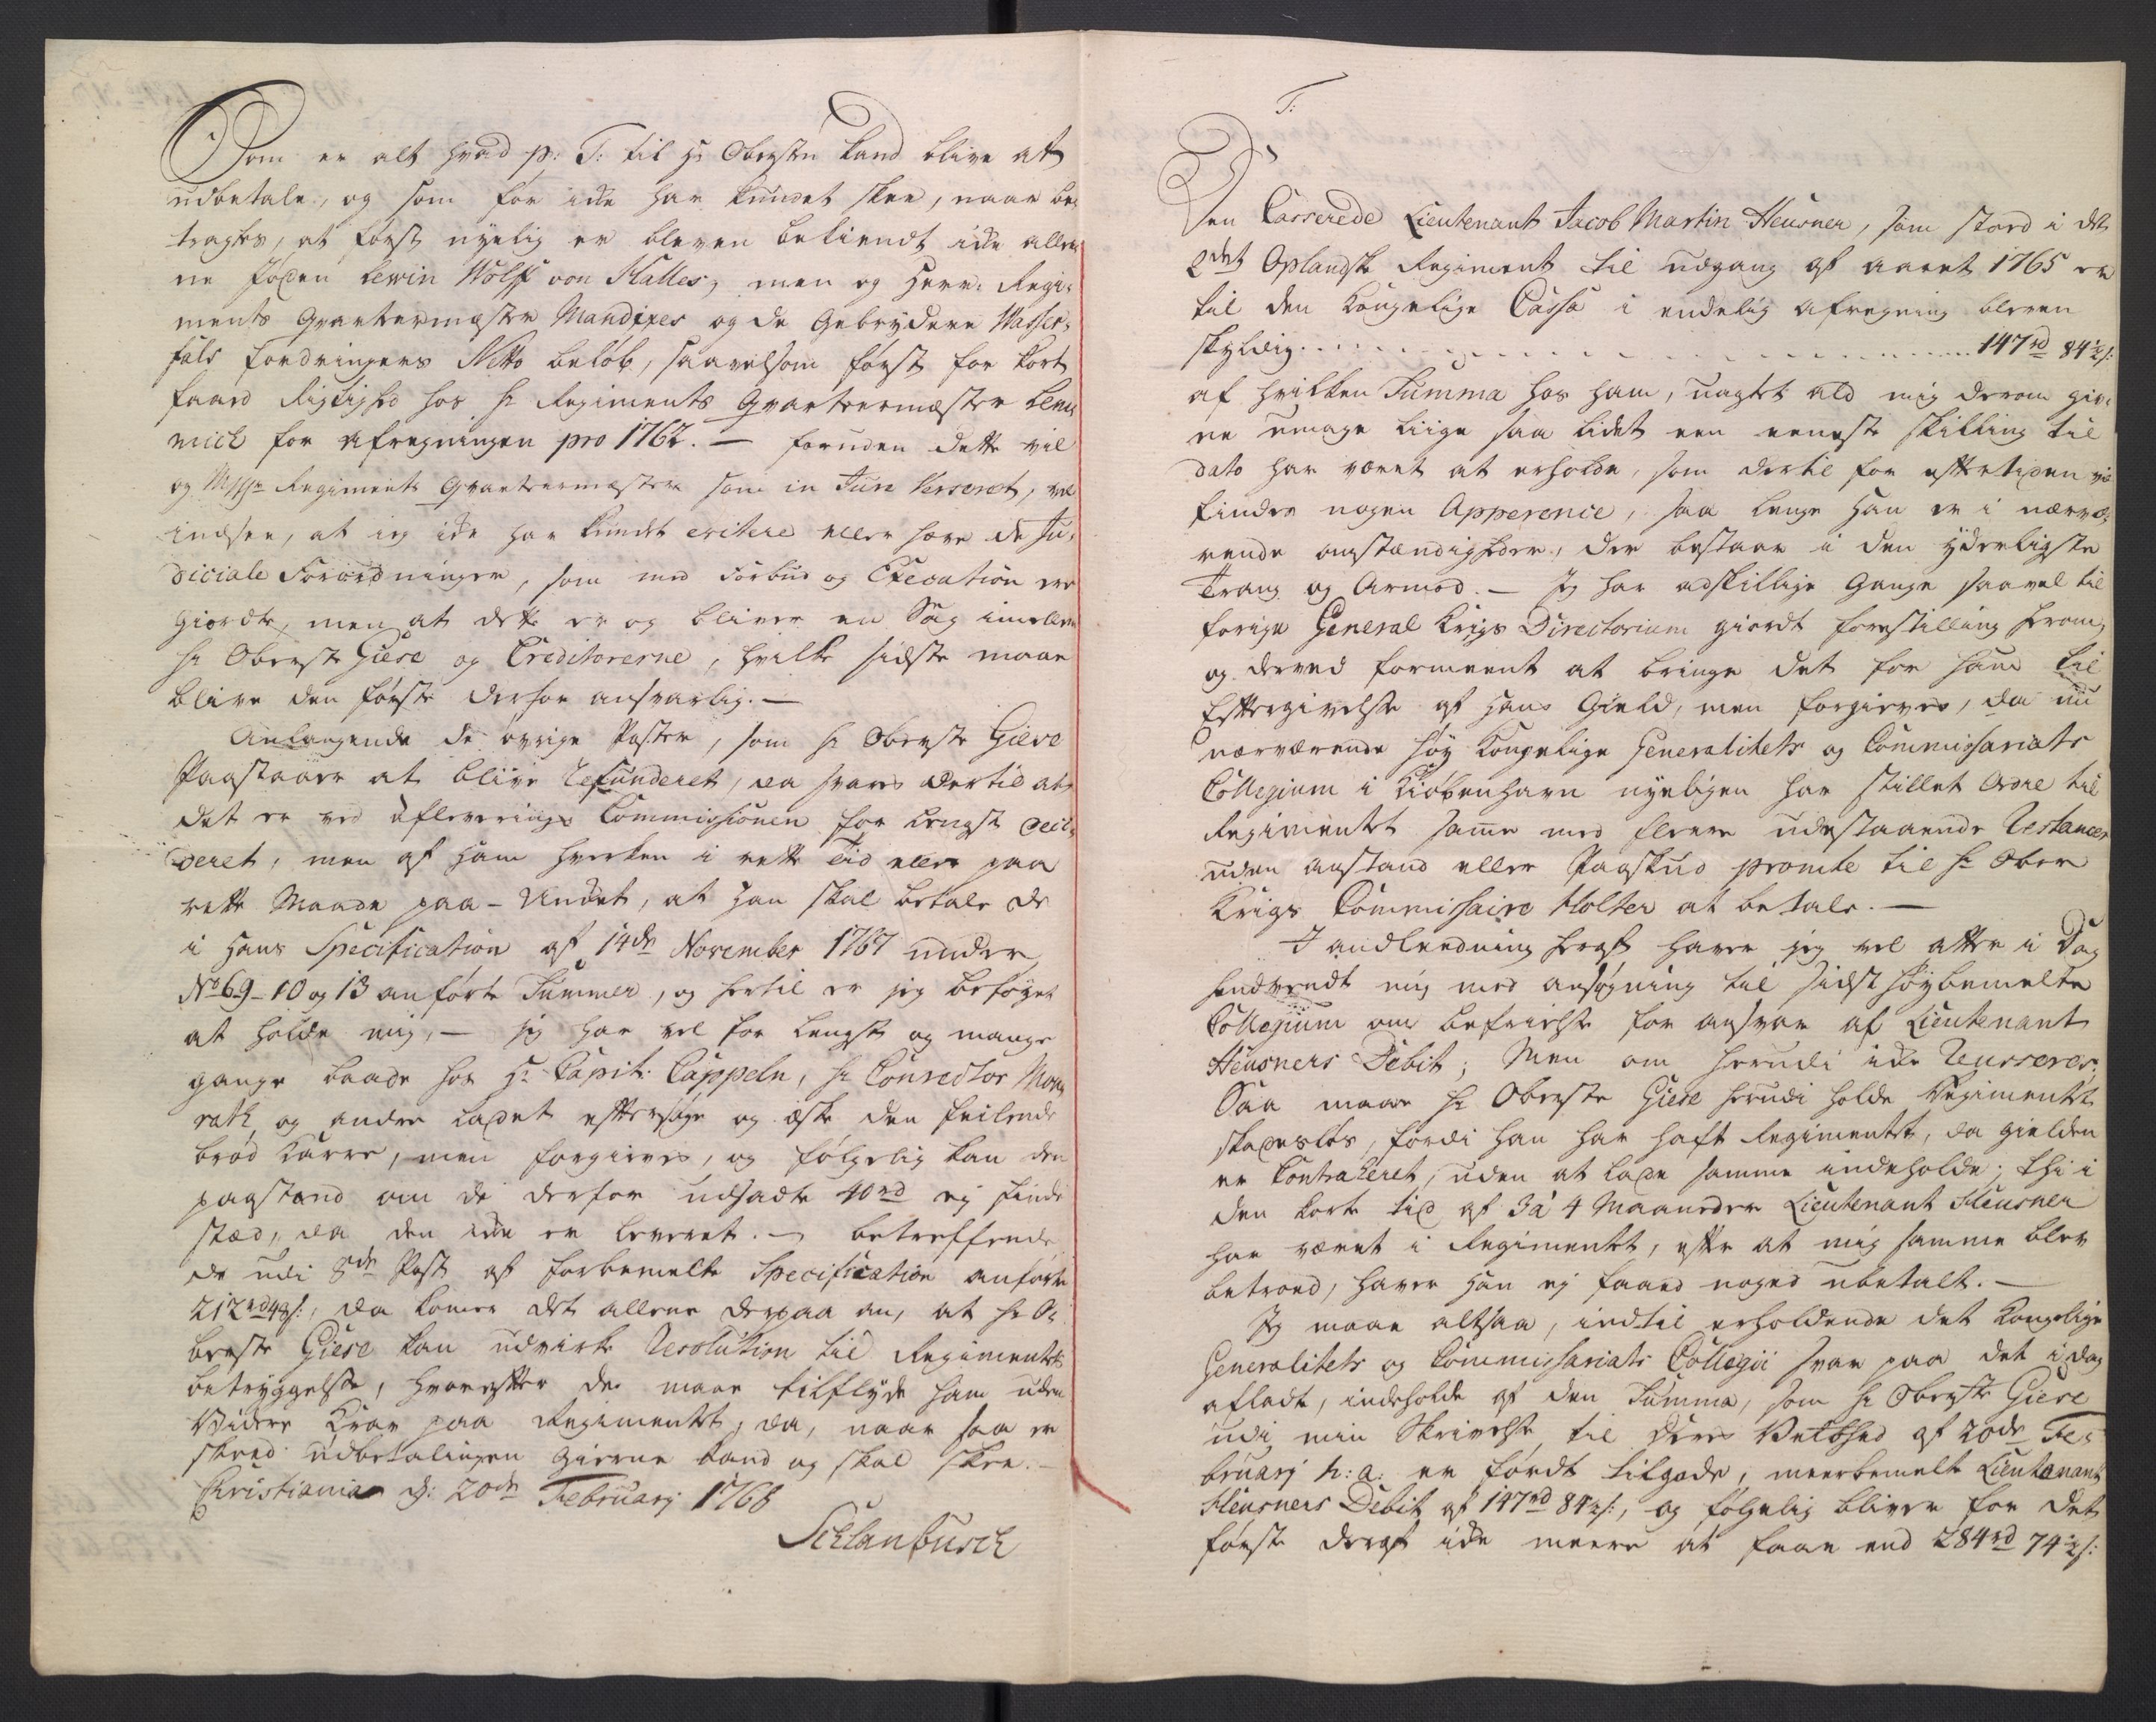 Som er alt hvad p: T: til Hr Obersten kand blive at
udbetale, og som før ikke har kundet skee, naar be-
tragtes, at først nyelig er bleven bekiendt ikke alle-
ne Jøden Lewin Wolff von Halles, men og Herr Regi-
ments Qvarteermester Mandixes og de Gebrydere Wasser-
fals fordringers Netto beløb, saavelsom først for kort
faaed Rigtighed hos Hr Regiments Qvarteermæster
for Afregningen pro 1762. — foruden dette vil
og Regiments Qvarteermæster som in Jure Verseret, vel
indsee, at jeg ikke har kundet evitere eller hæve de Ju-
diciale Forordninger, som med Forbud og Execution ere
giordte, men at dette er og bliver en Sag imellem
Hr Oberste Giese og Creditorerne, hvilke sidste maae
blive den første derfor ansvarlig. —
Anlangende de øvrige Poster, som Hr Oberste Giese
Paastaaer at blive Refunderet, da svares dertil at
det er ved Afleverings Commissionen for lengst deci-
deret, men af ham hverken i rette Tid eller paa
rette Maade paa-Andet, at han skal betale de
i hans Specification af 14de November 1767 under
No 6-9-10 og 13 anførte Summer, og hertil er jeg beføyet
at holde mig, — jeg har vel for lengst og mange
gange baade hos Hr Capit: Cappeln, Hr Conrector Mon-
rath og andre ladet eftersøge og æske den feilende
brød Karre, men forgieves, og følgelig kan den
paastand om de derfor udsadte 40rd ej finde
stæd, da den ikke er leveret. — betreffende
de udi 8de Post af forbemelte Specification anførte
212rd 48s:, da komer det allene derpaa an, at Hr O-
berste Giese kan udvirke Resolution til Regimentets
betryggelse, hvorefter de maae tilflyde ham uden
Videre Krav paa Regimentet, da, naar saa er
skeed udbetalingen gierne kand og skal skee. —
Christiania d: 20de Februarj 1768
Schlanbusch
T:
Den Casserede Lieutenant Jacob Martin Heusner, som stoed i det
2det Oplandske Regiment til udgang af aaret 1765 er
til den Kongelige Cassa i endelig Afregning bleven
skyldig . . . . . . . . . . . . . . . . . . . . 147rd 84½s:
af hvilken Summa hos ham, uagtet ald mig derom giv-
ne umage liige saa lidet een eeneste skilling til
dato har været at erholde, som dertil for eftertiden vil
findes nogen Apperence, saa lenge han er i nærvæ-
rende omstændigheder, der bestaaer i den yderligste
Trang og Armod. — Jeg har adskillige Gange saavel til
forige General Krigs Directorium giordt forestilling herom,
og derved formeent at bringe det for ham til
Eftergivelse af hans Gield, men forgieves, da nu
nærværende høy Kongelige Generalitets og Commissariats
Collegium i Kiøbenhavn nyeligen har stillet Ordre til
Regimentet samme med fleere udestaaende Restancer
uden anstand eller Paaskud promte til Hr Ober
Krigs Commissaire Holter at betale. —
I andleedning heraf haver jeg vel atter i Dag
hendvendt mig med ansøgning til sidst høybemelte
Collegium om befrielse for ansvar af Lieutenant
Heusners Debit; Men om herudi ikke Reusseres;
Saa maae Hr Oberste Giese herudi holde Regimentet
skadesløs, fordi han har haft Regimentet, da gielden
er Contraheret, uden at lade samme indeholde; thi i
den korte tid af 3 á 4 Maaneder Lieutenant Heusner
har været i Regimentet, efter at mig samme blev
betroed, haver han ej faaed noget ubetalt. —
Jeg maae altsaa, indtil erholdende det Kongelige
Generalitets og Commissariats Collegii svar paa det i dag
afladte, indeholde af den Summa, som Hr Oberste Giese
udi min Skrivelse til Deres Velbhed af 20de Fe-
bruarj h: a: er førdt tilgode, meerbemelte Lieutenant
Heusners Debit af 147rd 84½s:, og følgelig bliver for det
første deraf ikke meere at faae end 284rd 74½s: